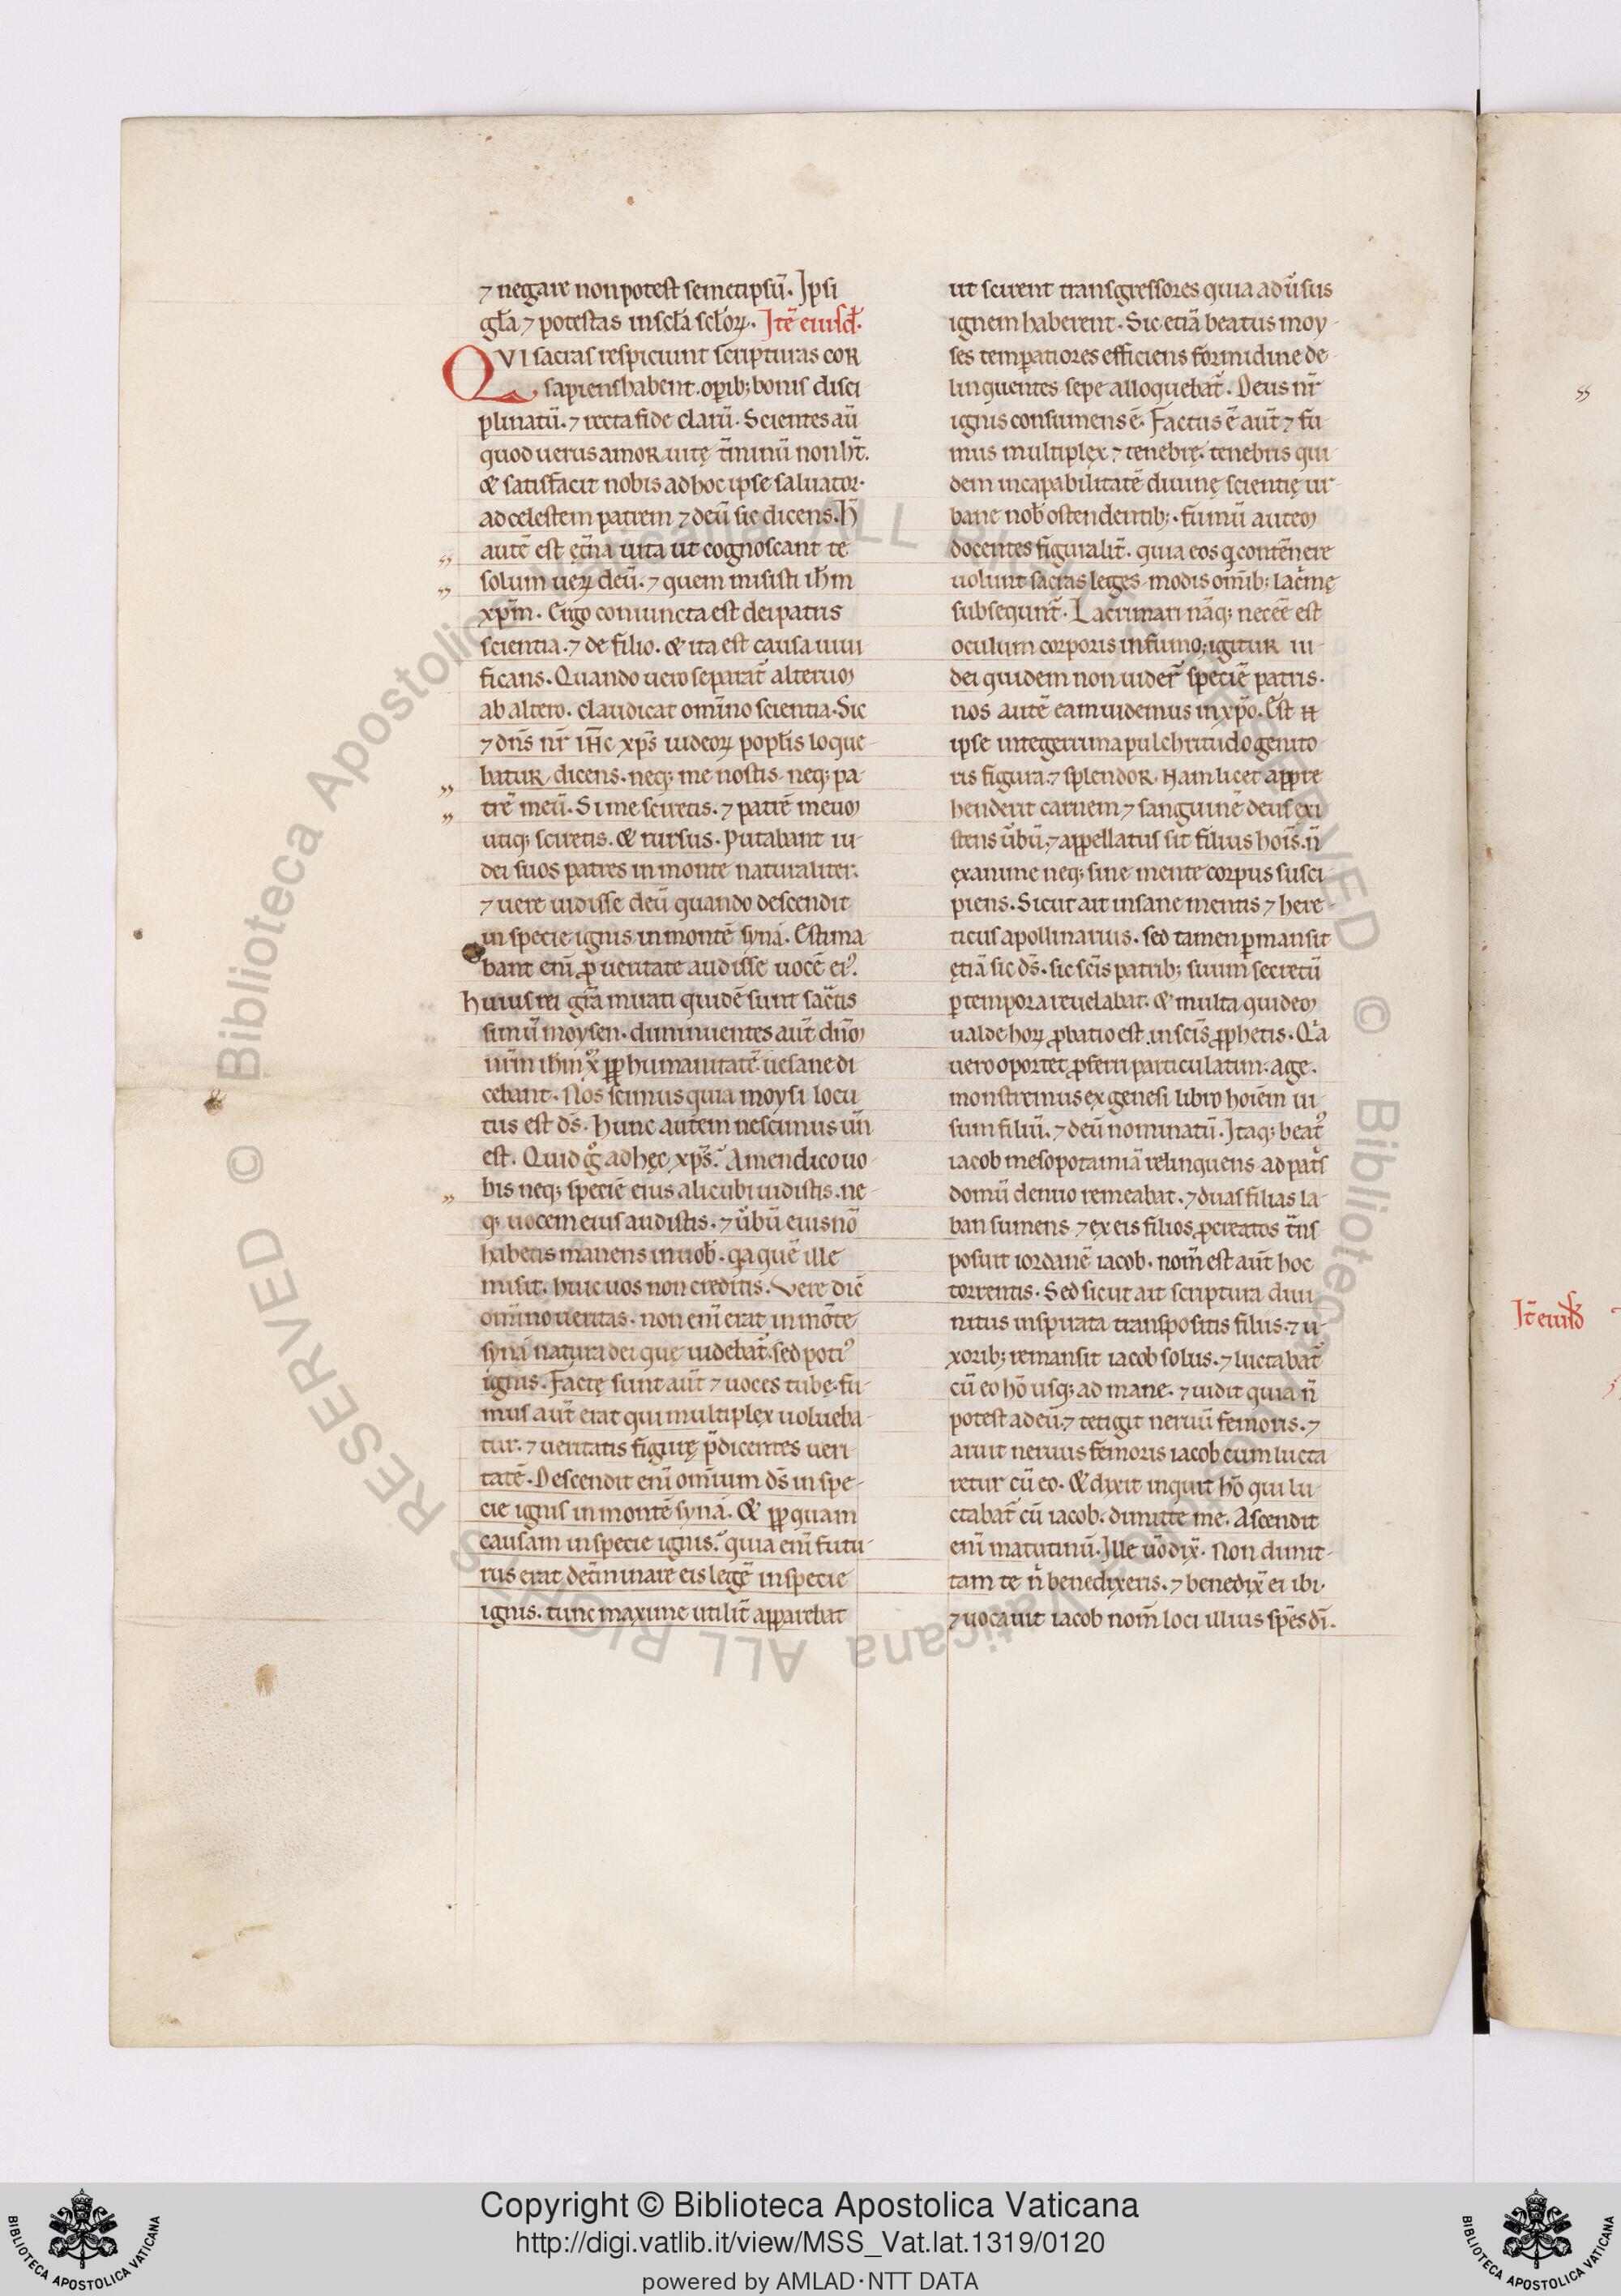 ⁊ negare non potest semetipsū. Ipsi
gl̄a ⁊ potestas in scl̄a scl̄oꝝ. Itē eiusd̄.
QVI sacras respiciunt scripturas coR
sapiens habent. opib; bonis disci-
plinatū. ⁊ recta fide clarū. Scientes aū
quod uerus amoR uitę t̄minū non ht̄.
& satisfacit nobis ad hoc ipse saluator.
ad celestem patrem ⁊ deū sic dicens. h̄
autē est et̄na uita ut cognoscant te
solum ueꝝ deū. ⁊ quem misisti ih̄m
xp̄m. Ergo coniuncta est dei patris
scientia. ⁊ de filio. & ita est causa uiui
ficans. Quando uero separat̄ alterum
ab altero. claudicat om̄ino scientia. Sic
⁊ dn̄s nr̄ ih̄c xp̄s iudeoꝝ popl̄is loque-
batuR, dicens. neq; me nostis. neq; pa-
trē meū. Si me sciretis. ⁊ patrē meum
utiq; sciretis. & rursus. Putabant iu-
dei suos patres in monte naturaliter.
⁊ uere uidisse deū quando descendit
in specie ignis in montē syna. Estima-
bant eni ꝓ ueritate audisse uocē ei᷒.
huius rei gr̄a mirati quidē sunt sāctis
simū moysen. diminuentes aut̄ dn̄m
nr̄m ih̄m x̄ ꝓp humanitatē. uesane di
cebant. Nos scimus quia moysi locu
tus est d̄s. hunc autem nescimus un̄
est. Quid g̊ ad hęc xp̄s. Amen dico uo-
bis neq; speciē eius alicubi uidistis. ne-
q; uocem eius audistis. ⁊ ūbū eius nō
habetis manens in uob̄. q̄a quē ille
misit. huic uos non creditis. Vere dic̄
om̄ino ueritas. non enī erat in mōte
syna natura dei que uidebat̄. sed poti᷒
ignis. Factę sunt aut̄ ⁊ uoces tubę. fu-
mus aut̄ erat qui multiplex uolueba-
tur. ⁊ ueritatis figurę p̄dicentes ueri-
tatē. Descendit enī om̄ium d̄s in spe-
cie ignis in montē syna. & ꝓp quam
causam in specie ignis. quia enī futu-
rus erat det̄minare eis legē in specie
ignis. tunc maxime utilit̄ apparebat
ut scirent transgressores quia adūsus
ignem haberent. Sic etiā beatus moy-
ses temꝑatiores efficiens formidine de-
linquentes sepe alloquebat̄. Deus nr̄
ignis consumens ē. Factus ē aut̄ ⁊ fu-
mus multiplex ⁊ tenebrę. tenebris qui-
dem incapabilitatē diuinę scientię ur-
bane nob̄ ostendentib;. fumū autem
docentes figuralit̄. quia eos q contēnere
uolunt sacras leges. modis om̄ib; lac̄mę
subsequnt̄. Lacrimari nāq; necēē est
oculum corporis in fumo. igituR iu-
dei quidem non uider̄ speciē patris.
nos autē eam uidemus in xp̄o. Est n
ipse integerrima pulchritudo genito-
ris figura. ⁊ splendoR. Nam licet appre
henderit carnem ⁊ sanguinē deus exi
stens ūbū. ⁊ appellatus sit filius hois̄. n̄
exanime neq; sine mente corpus susci-
piens. Sicut ait insane mentis ⁊ here-
ticus apollinarius. sed tamen ꝑmansit
etiā sic d̄s. sic scīs patrib; suum secretū
ꝑ tempora reuelabat. & multa quidem
ualde hoꝝ ꝓbatio est in scīs ꝓphetis. Q̄a
uero oportet ꝓferri particulatim. age.
monstremus ex genesi libro hoiēm ui-
sum filiū. ⁊ deū nominatū. Itaq; beat᷒
iacob mesopotamiā relinquens ad pat̄s
domū denuo remeabat. ⁊ duas filias la-
ban sumens ⁊ ex eis filios ꝓcreatos t̄ns
posuit iordanē iacob. nom̄ est aut̄ hoc
torrentis. Sed sicut ait scriptura diui-
nitus inspirata transpositis filiis. ⁊ u-
xorib; remansit iacob solus. ⁊ luctabat̄
cū eo hō usq; ad mane. ⁊ uidit quia n̄
potest ad eū. ⁊ tetigit neruū femoris. ⁊
aruit neruus femoris iacob cum lucta
retur cū eo. & dixit inquit hō qui lu-
ctabat̄ cū iacob. dimitte me. Ascendit
enī matutinū. Ille ūo dix̄. Non dimit-
tam te n̄ benedixeris. ⁊ benedix̄ ei ibi.
⁊ uocauit iacob nom̄ loci illius spēs dī.
It̄ eiusd̄
Copyright © Biblioteca Apostolica Vaticana
http://digi.vatlib.it/view/MSS_Vat.lat.1319/0120
powered by AMLAD·NTT DATA
BIBLIOTECA APOSTOLICA VATICANA
BIBLIOTECA APOSTOLICA VATICANA
© Biblioteca Apostolica Vaticana ALL RIGHTS RESERVED © Biblioteca Apostolica Vaticana ALL RIGHTS RESERVED